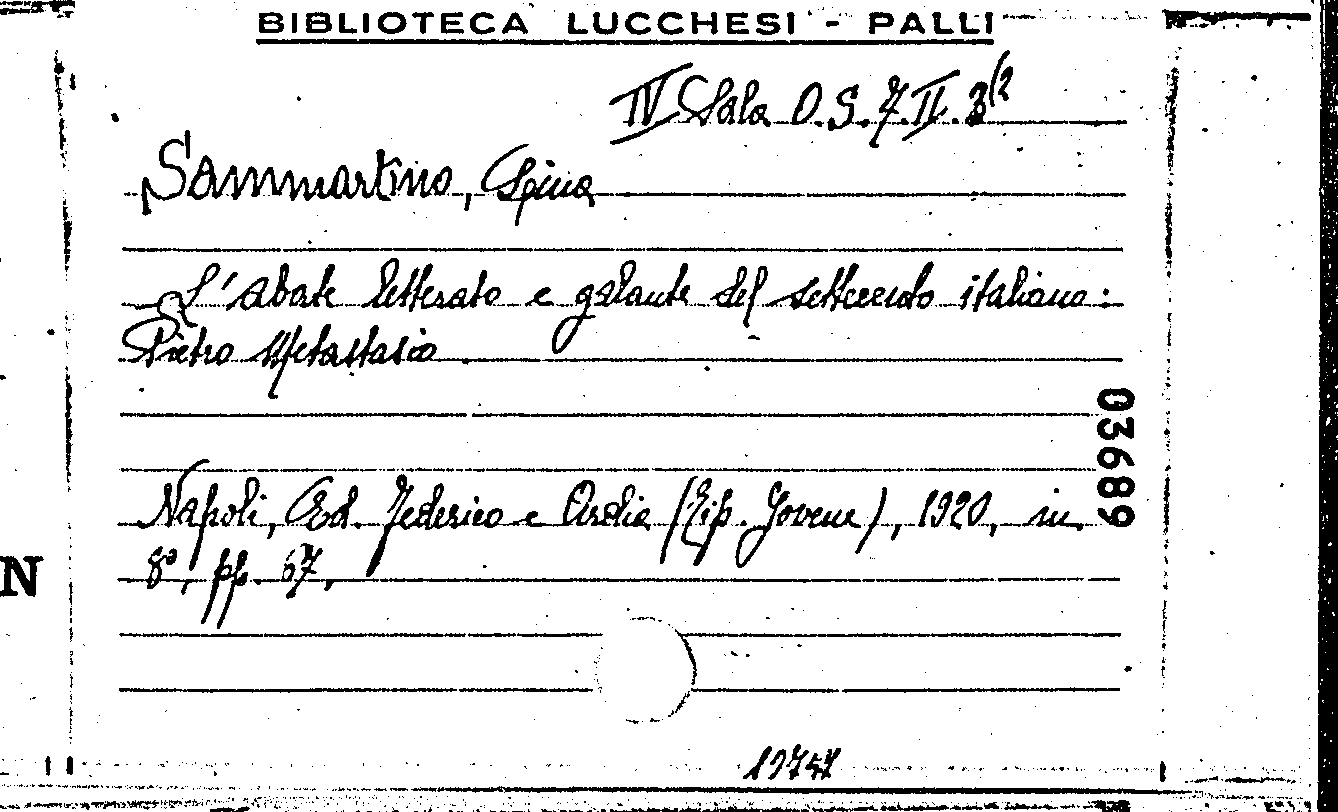 BIBLIOTECA LUCCHESI - PALLI
IV Sala O.S.7.II.3(2
Sammartino, Spina
L'abate letterato e galante del settecento italiano:
Pietro Metastasio.
03689
Napoli, Ed. Federico e Ardia (Tip. Jovene), 1920, in
8°, pp. 67.
N